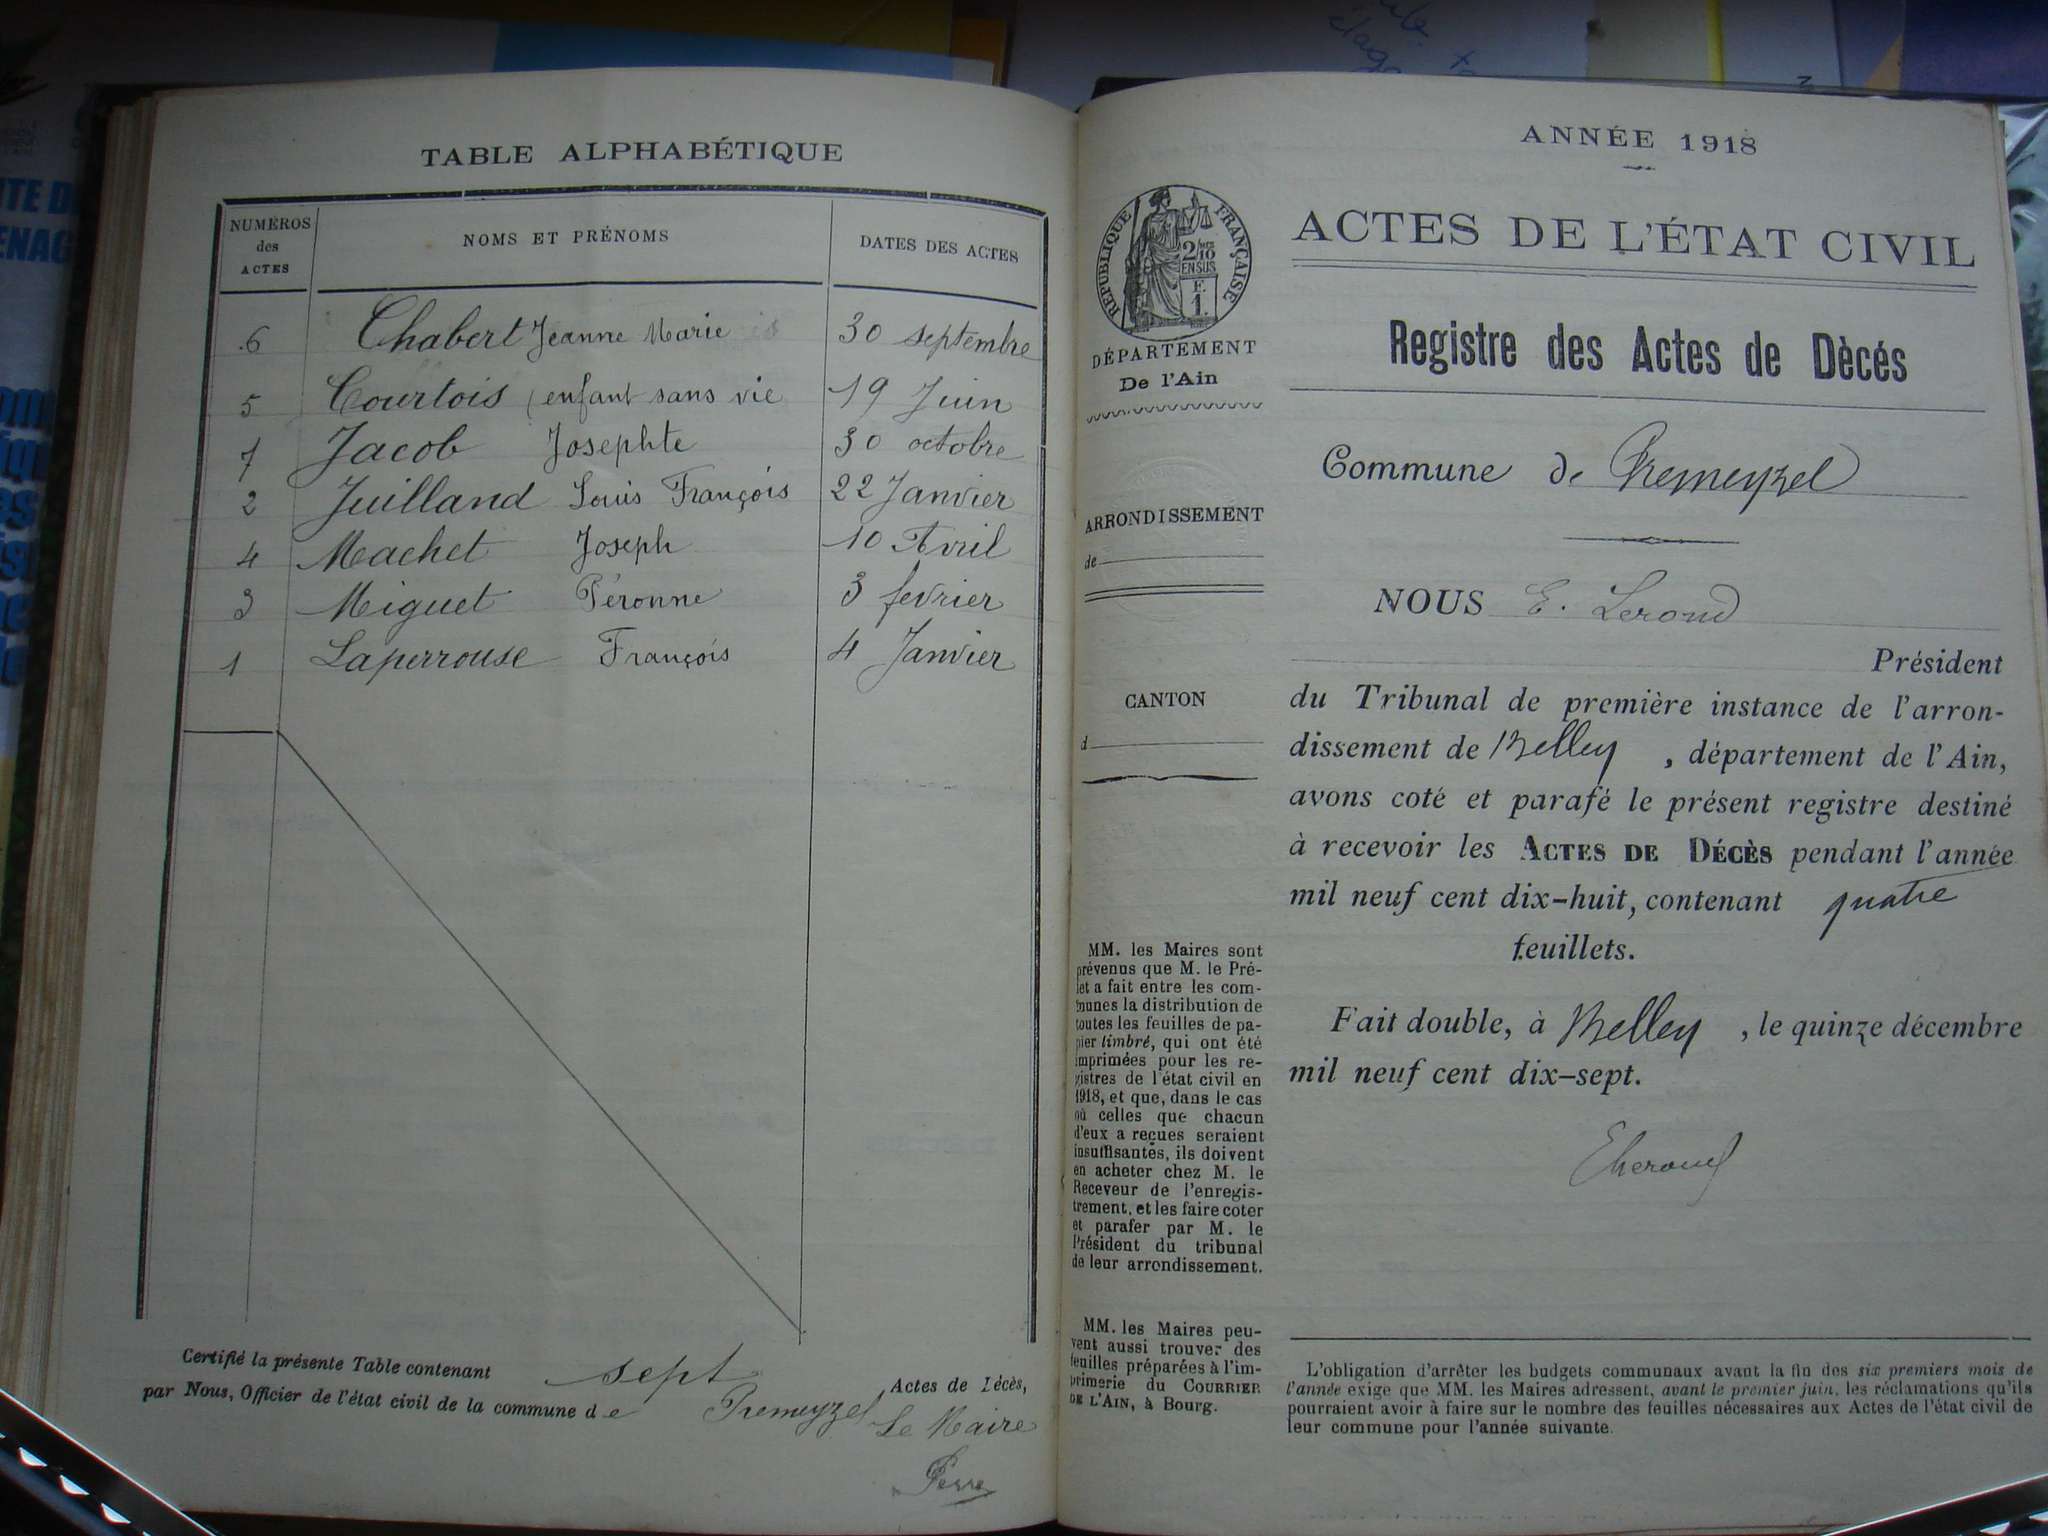 TABLE ALPHABÉTIQUE
NUMÉROS
des
ACTES
NOMS ET PRÉNOMS
DATES DES ACTES
6 Chabert Jeanne Marie 30 septembre
5 Courtois (enfant sans vie 19 Juin
7 Jacob Josephte 30 octobre
2 Juilland Louis François 22 Janvier
4 Machet Joseph 10 Avril
3 Miguet Péronne 3 fevrier
1 Laperrouse François 4 Janvier
Certifié la présente Table contenant sept Actes de Décès,
par Nous, Officier de l'état civil de la commune de Premeyzel
Le Maire
ANNÉE 1918
RÉPUBLIQUE FRANÇAISE
2/10
EN SUS
F.
1.
DÉPARTEMENT
De l'Ain
ARRONDISSEMENT
de
CANTON
d
MM. les Maires sont
prévenus que M. le Pré-
fet a fait entre les com-
munes la distribution de
toutes les feuilles de pa-
pier timbré, qui ont été
imprimées pour les re-
gistres de l'état civil en
1918, et que, dans le cas
où celles que chacun
d'eux a reçues seraient
insuffisantes, ils doivent
en acheter chez M. le
Receveur de l'enregis-
trement, et les faire coter
et parafer par M. le
Président du tribunal
de leur arrondissement.
MM. les Maires peu-
vent aussi trouver des
feuilles préparées à l'im-
primerie du COURRIER
DE L'AIN, à Bourg.
ACTES DE L'ÉTAT CIVIL
Registre des Actes de Dècés
Commune de Premeyzel
NOUS E. Lerond
Président
du Tribunal de première instance de l'arron-
dissement de Belley, département de l'Ain,
avons coté et parafé le présent registre destiné
à recevoir les ACTES DE DÉCÈS pendant l'année
mil neuf cent dix-huit, contenant quatre
feuillets.
Fait double, à Belley, le quinze décembre
mil neuf cent dix-sept.
L'obligation d'arrêter les budgets communaux avant la fin des six premiers mois de
l'année exige que MM. les Maires adressent, avant le premier juin, les réclamations qu'ils
pourraient avoir à faire sur le nombre des feuilles nécessaires aux Actes de l'état civil de
leur commune pour l'année suivante.